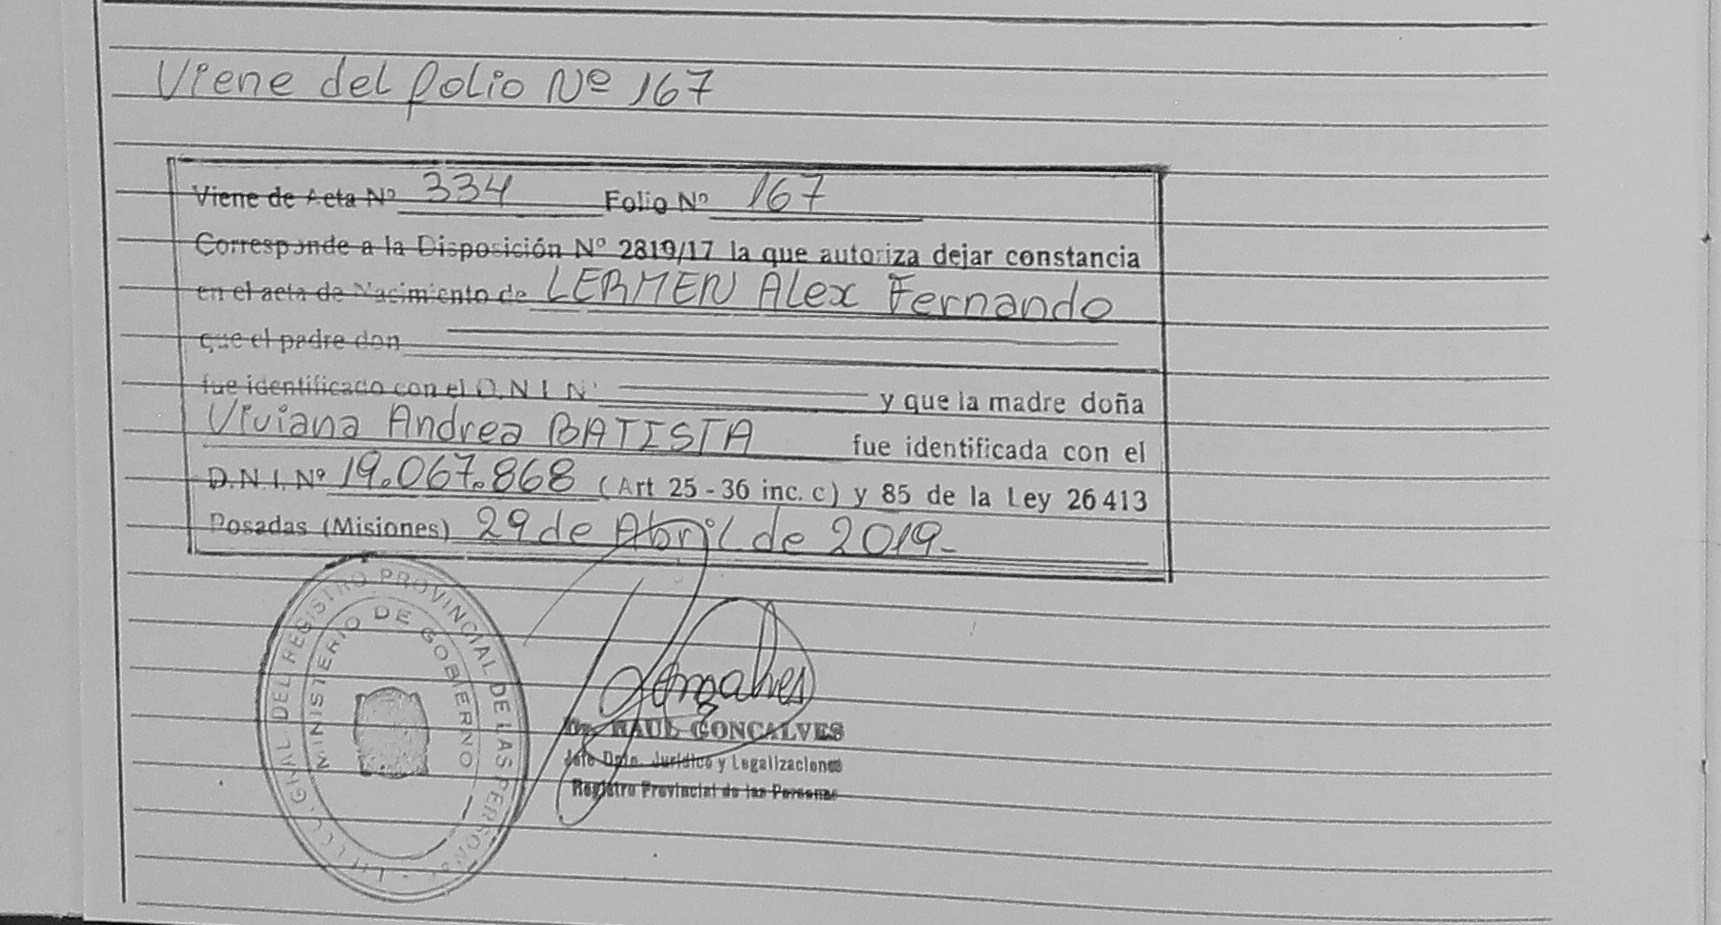 Viene del folio Nº 167
Viene de Acta Nº 334 Folio Nº 167
Corresponde a la Disposición Nº 2819/17 la que autoriza dejar constancia
en el acta de Nacimiento de LERMEN Alex Fernando
que el padre don
fue identificado con el D.N.I. Nº y que la madre doña
Viviana Andrea BATISTA fue identificada con el
D.N.I. Nº 19.067.868 (Art 25 - 36 inc. c) y 85 de la Ley 26413
Posadas (Misiones) 29 de Abril de 2019-
GRAL. DEL REGISTRO PROVINCIAL DE LAS PERSONAS
MINISTERIO DE GOBIERNO
Gonçalves
Dr. RAUL GONCALVES
Jefe Dpto. Jurídico y Legalizaciones
Registro Provincial de las Personas